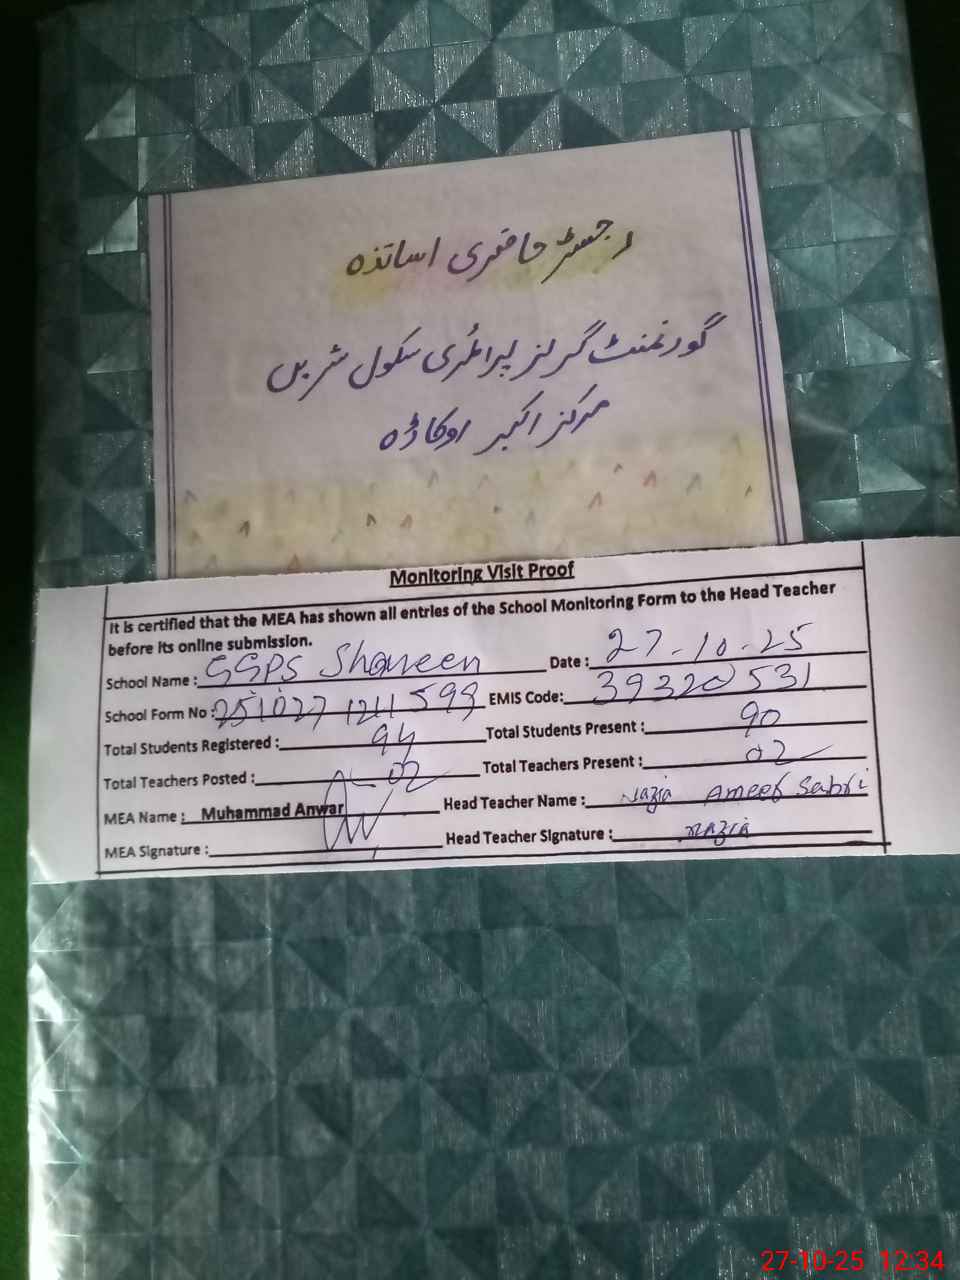 رجسٹر حاضری اساتذہ
گورنمنٹ گرلز پرائمری سکول شریں
مرکز اکبر اوکاڑہ
Monitoring Visit Proof
It is certified that the MEA has shown all entries of the School Monitoring Form to the Head Teacher
before its online submission.
School Name : GGPS Shareen Date : 27-10-25
School Form No : 251027 1211 599 EMIS Code: 39320531
Total Students Registered : 94 Total Students Present : 90
Total Teachers Posted : 02 Total Teachers Present : 02
MEA Name : Muhammad Anwar Head Teacher Name : Nazia Ameer Sabri
MEA Signature : Head Teacher Signature : nazia
27-10-25 12:34